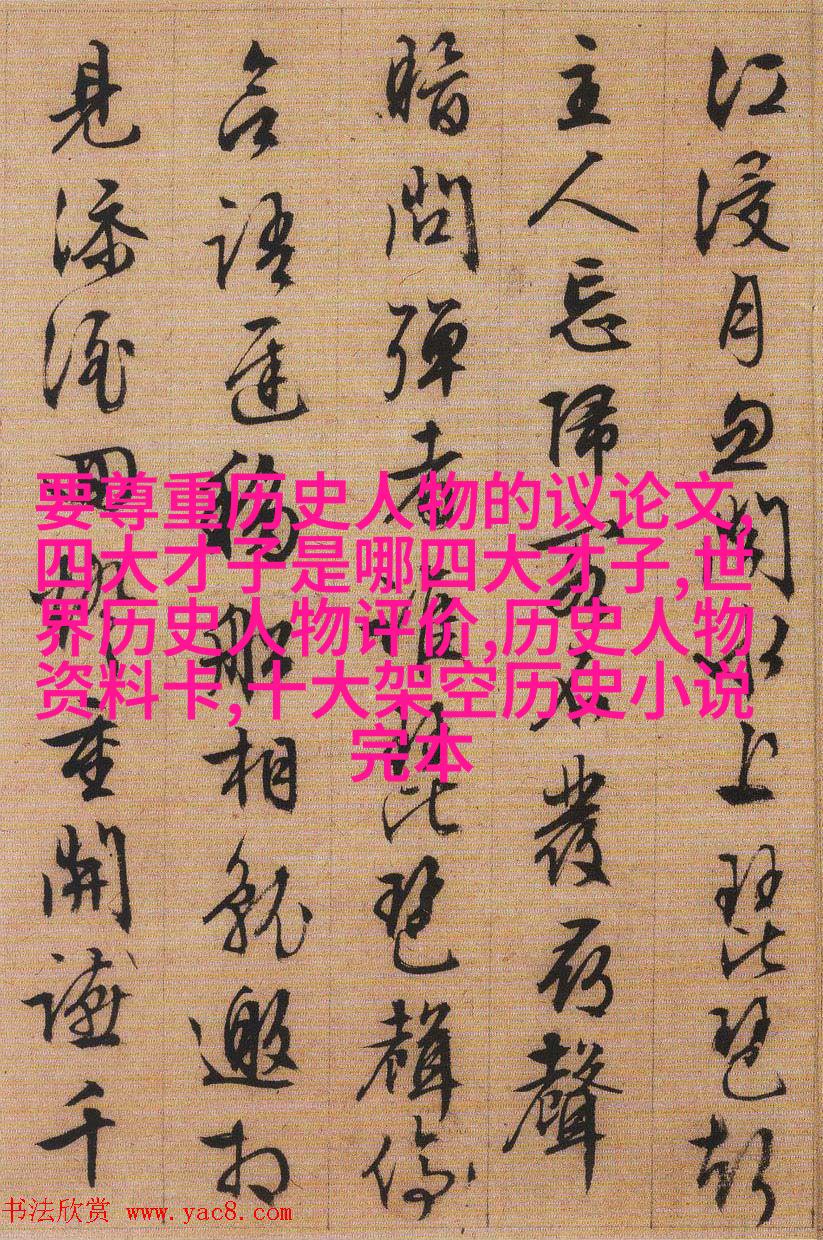 江浸月忽聞水上琵琶聲
主人忘歸客不發尋聲
暗問彈者誰琵琶聲停
欲語遲移船相就邀相
見添酒回燈重開讌千
要尊重历史人物的议论文,
四大才子是哪四大才子,世
界历史人物评价,历史人物
资料卡,十大架空历史小说
完本
书法欣赏 www.yac8.com